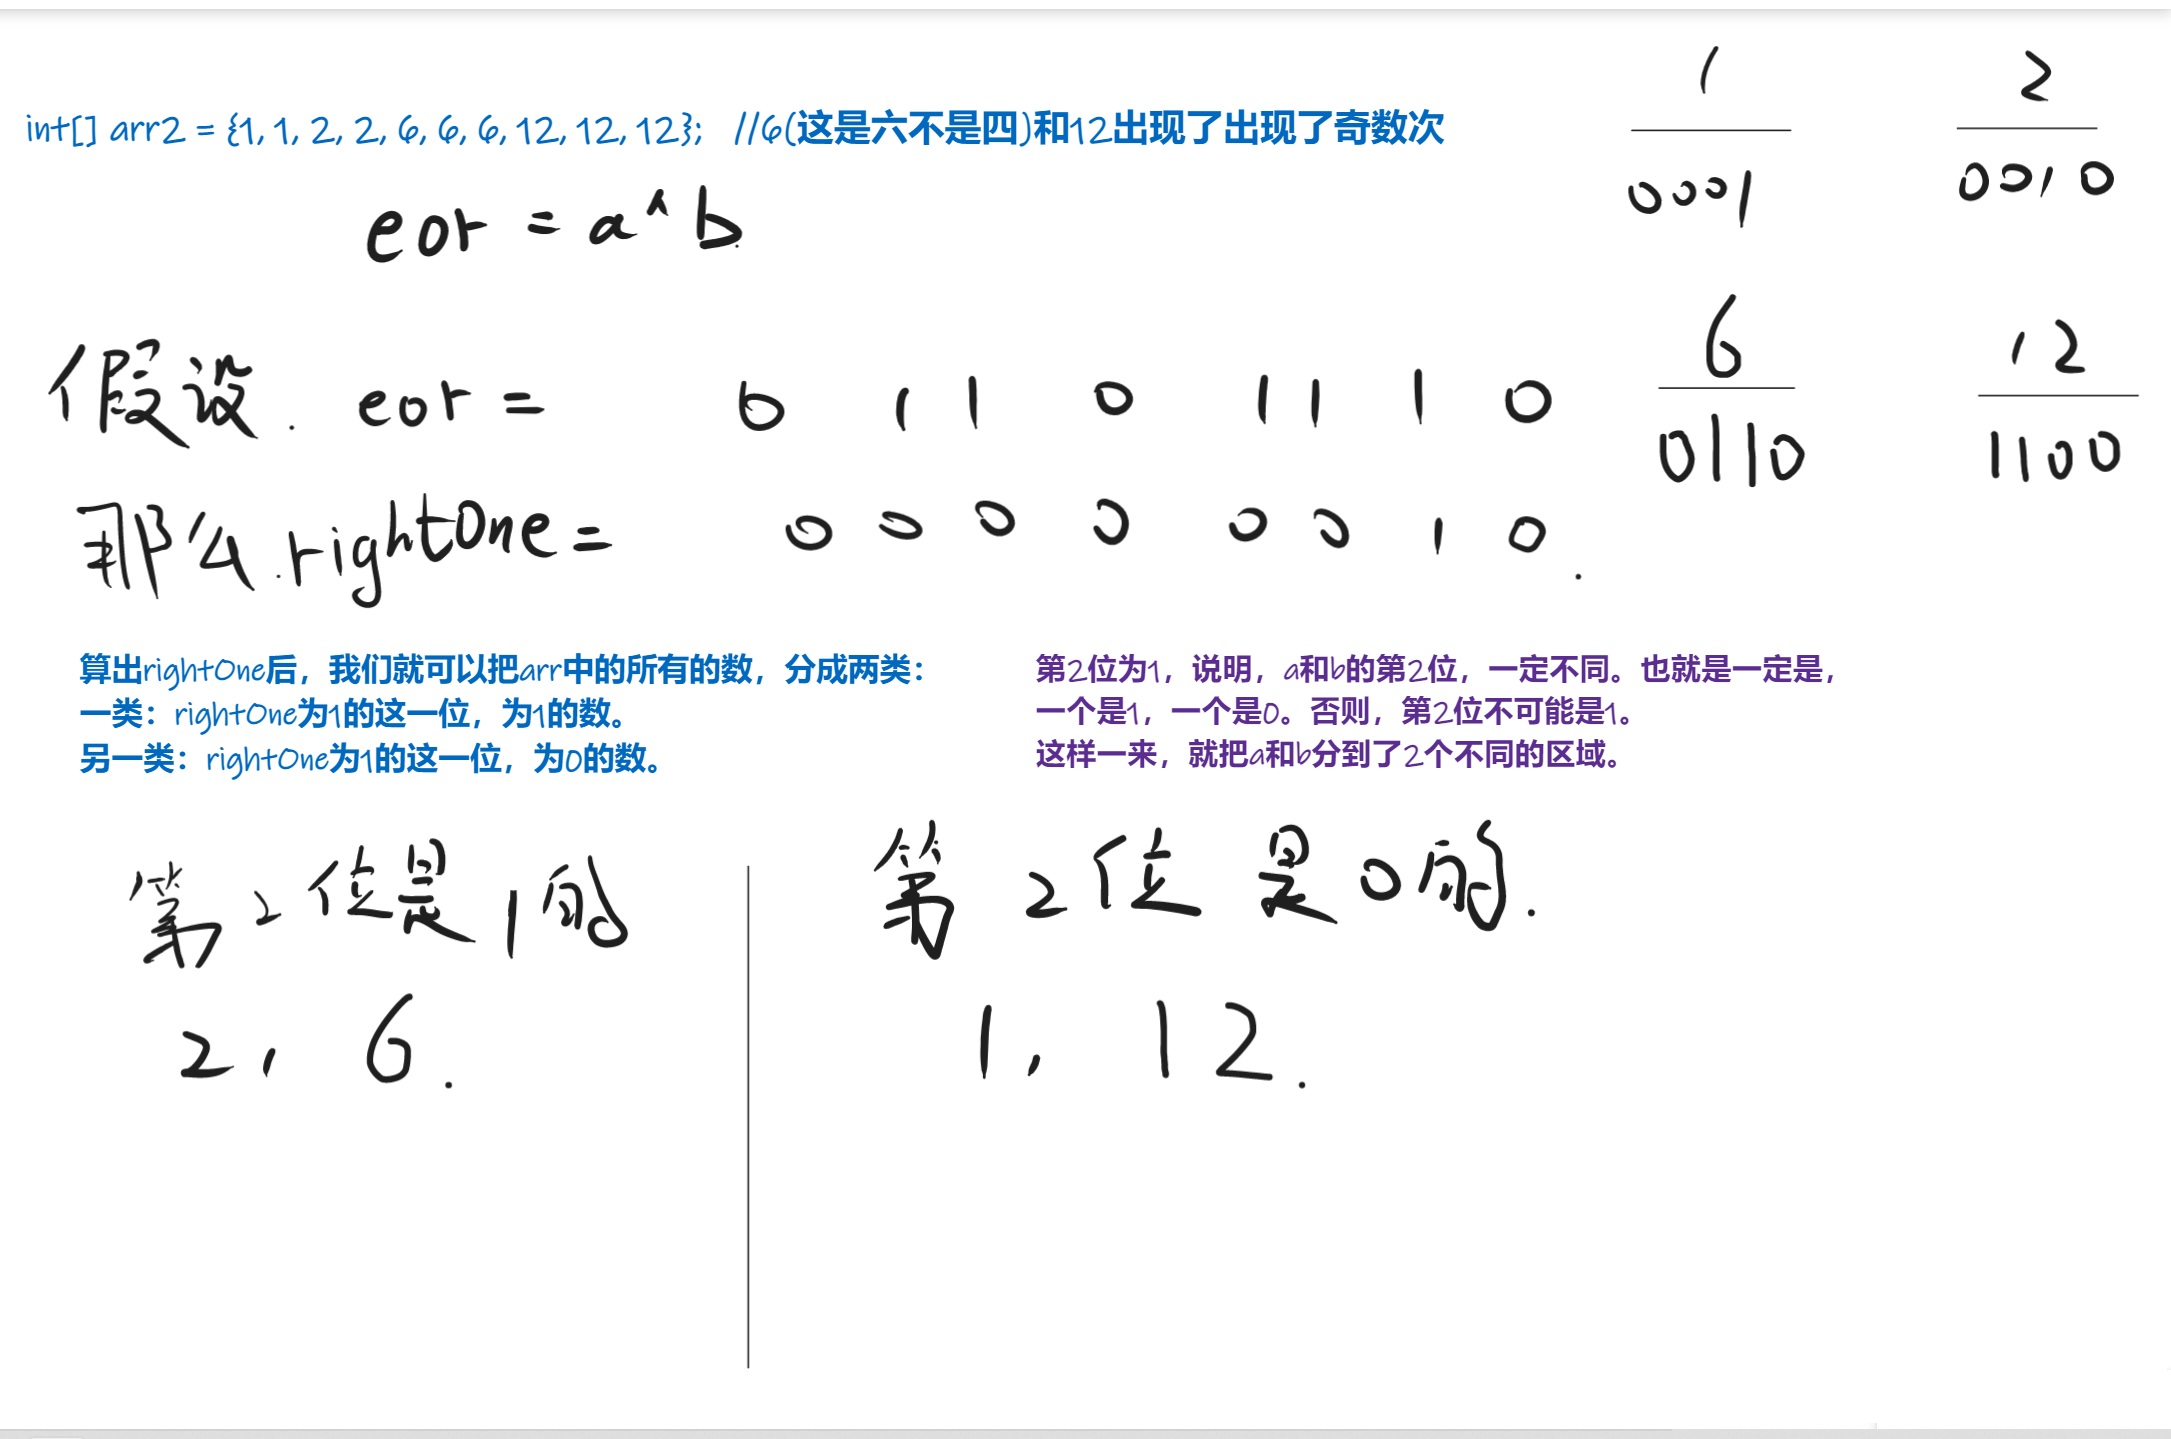 int[] arr2 = {1, 1, 2, 2, 6, 6, 6, 12, 12, 12};   //6(这是六不是四)和12出现了出现了奇数次
eor = a^b
1
0001
2
0010
假设. eor = 0 1 1 0 1 1 1 0
那么.rightOne= 0 0 0 0 0 0 1 0.
6
0110
12
1100
算出rightOne后，我们就可以把arr中的所有的数，分成两类：
一类：rightOne为1的这一位，为1的数。
另一类：rightOne为1的这一位，为0的数。
第2位为1，说明，a和b的第2位，一定不同。也就是一定是，
一个是1，一个是0。否则，第2位不可能是1。
这样一来，就把a和b分到了2个不同的区域。
第2位是1的
2, 6.
第2位是0的.
1, 12.